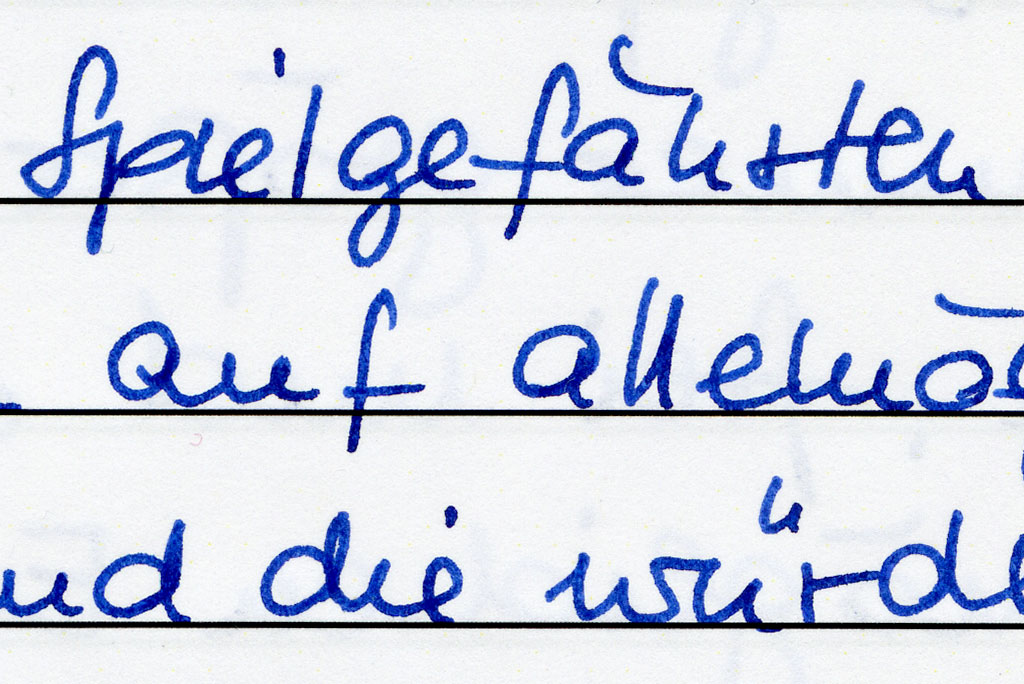 Spielgefährten
auf allemö
und die würde